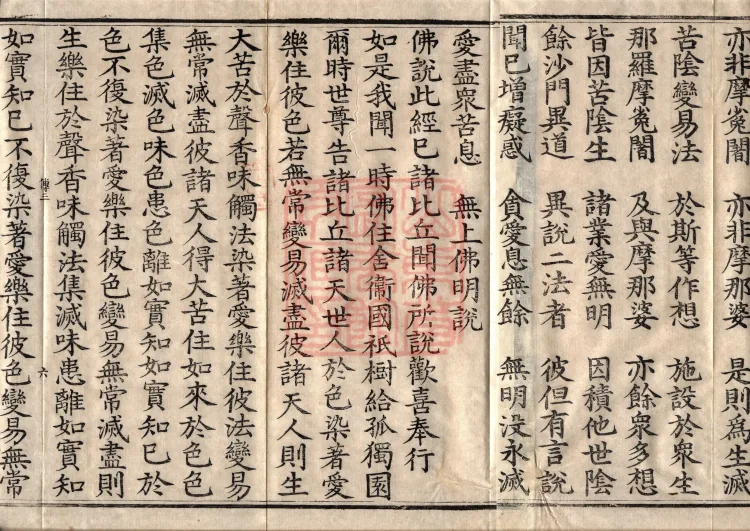 亦非摩㝹闍　亦非摩那婆　是則為生滅
苦陰變易法　於斯等作想　施設於衆生
那羅摩㝹闍　及與摩那婆　亦餘衆多想
皆因苦陰生　諸業愛無明　因積他世陰
餘沙門異道　異說二法者　彼但有言說
聞已增癡惑　貪愛息無餘　無明没永滅
愛盡衆苦息　無上佛明說
佛說此經已諸比丘聞佛所說歡喜奉行
如是我聞一時佛住舍衞國祇樹給孤獨園
爾時世尊告諸比丘諸天世人於色染著愛
樂住彼色若無常變易滅盡彼諸天人則生
大苦於聲香味觸法染著愛樂住彼法變易
無常滅盡彼諸天人得大苦住如來於色色
集色滅色味色患色離如實知如實知已於
色不復染著愛樂住彼色變易無常滅盡則
生樂住於聲香味觸法集滅味患離如實知
傳三　六
如實知已不復染著愛樂住彼色變易無常